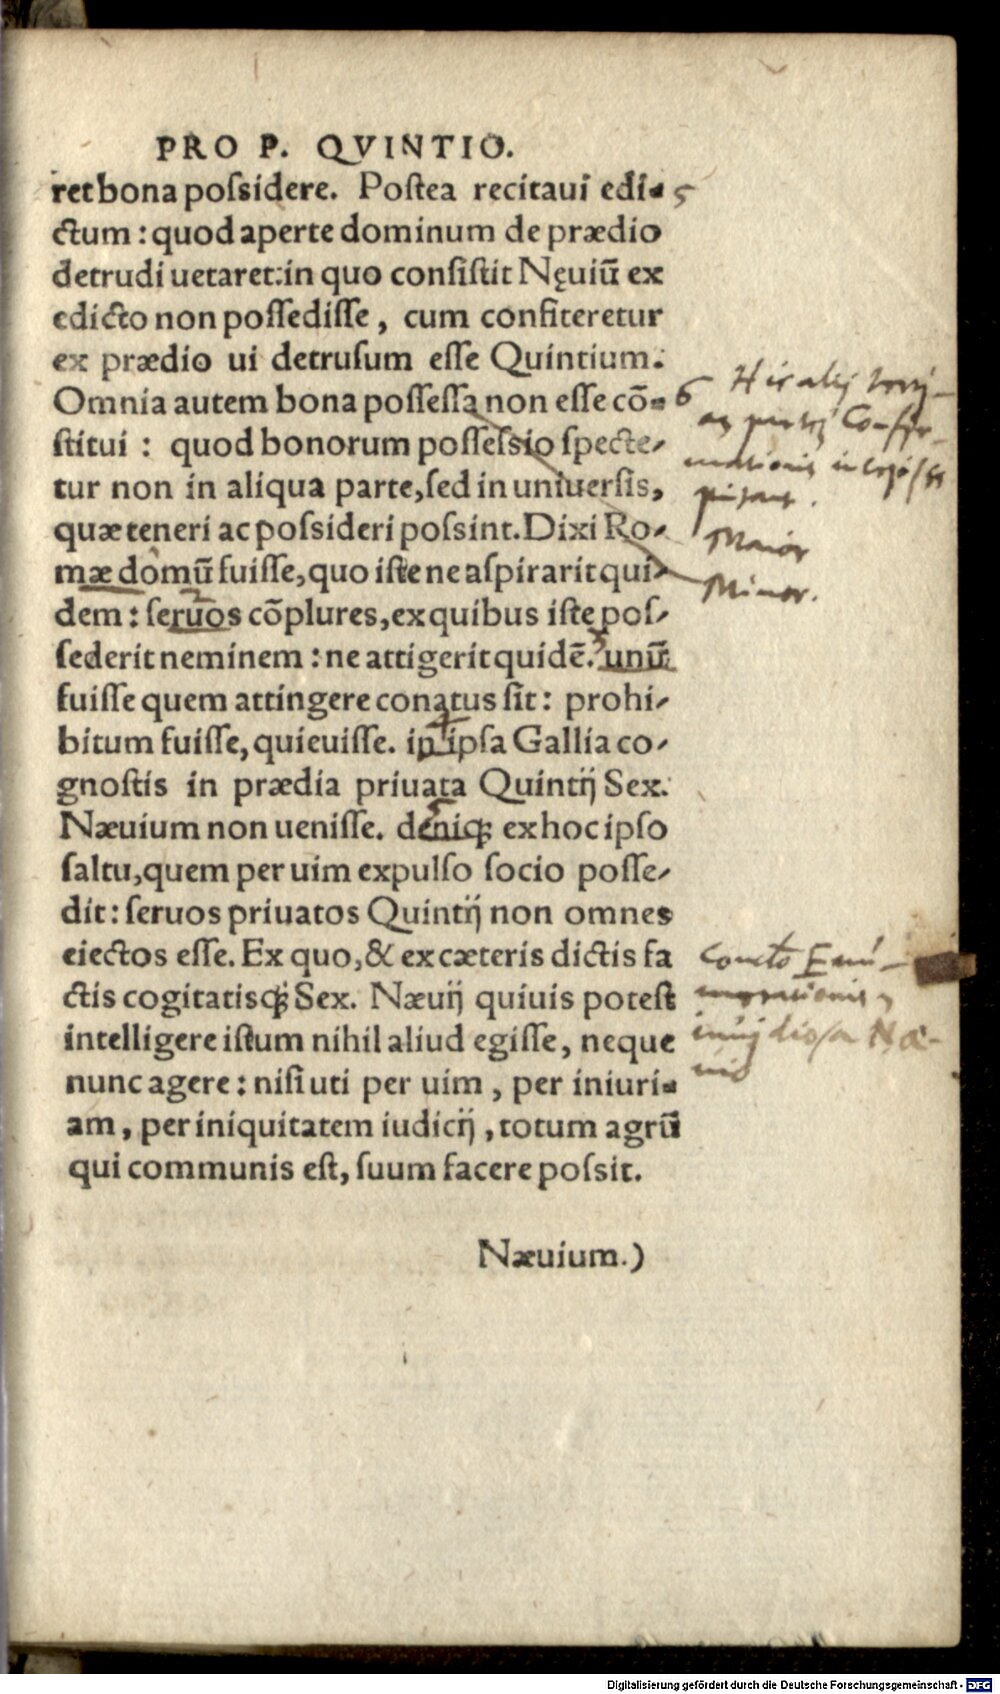 PRO P. QVINTIO.
ret bona poſsidere. Poſtea recitaui edi- 5
ctum : quod aperte dominum de prædio
detrudi uetaret: in quo conſiſtit Nęuiū ex
edicto non poſſediſſe, cum confiteretur
ex prædio ui detruſum eſſe Quintium.
Omnia autem bona poſſeſſa non eſſe cō- 6
ſtitui : quod bonorum poſſeſsio ſpecte-
tur non in aliqua parte, ſed in uniuerſis,
quæ teneri ac poſsideri poſsint. Dixi Ro-
mæ domū fuiſſe, quo iſte ne aſpirarit qui-
dem : ſeruos cōplures, ex quibus iſte poſ-
ſederit neminem : ne attigerit quidē. unū
fuiſſe quem attingere conatus ſit : prohi-
bitum fuiſſe, quieuiſſe. in ipſa Gallia co-
gnoſtis in prædia priuata Quintij Sex.
Næuium non ueniſſe. deniq; ex hoc ipſo
ſaltu, quem per uim expulſo ſocio poſſe-
dit : ſeruos priuatos Quintij non omnes
eiectos eſſe. Ex quo, & ex cæteris dictis fa
ctis cogitatisq; Sex. Næuij quiuis poteſt
intelligere iſtum nihil aliud egiſſe, neque
nunc agere : niſi uti per uim, per iniuri-
am, per iniquitatem iudicij, totum agrū
qui communis eſt, ſuum facere poſsit.
Næuium.)
Maior
Minor.
Digitalisierung gefördert durch die Deutsche Forschungsgemeinschaft - DFG